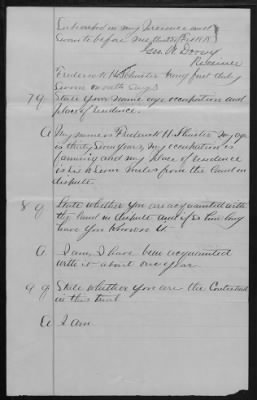 Subscribed in my presence and
sworn to before me this
Geo. W. Dorsey
Receiver
Frederick H Shuster being first duly
sworn on oath says
7 q State your name age occupation and
place of residence.
a My name is Frederick H Shuster my age
is thirty years, my occupation is
farming and my place of residence
is miles from the land in
dispute
8 q State whether you are acquainted with
the land in dispute and if so how long
have you known it.
a I am, I have been acquainted
with it about one year
9 q State whether you are the Contestant
in this trial
a I am